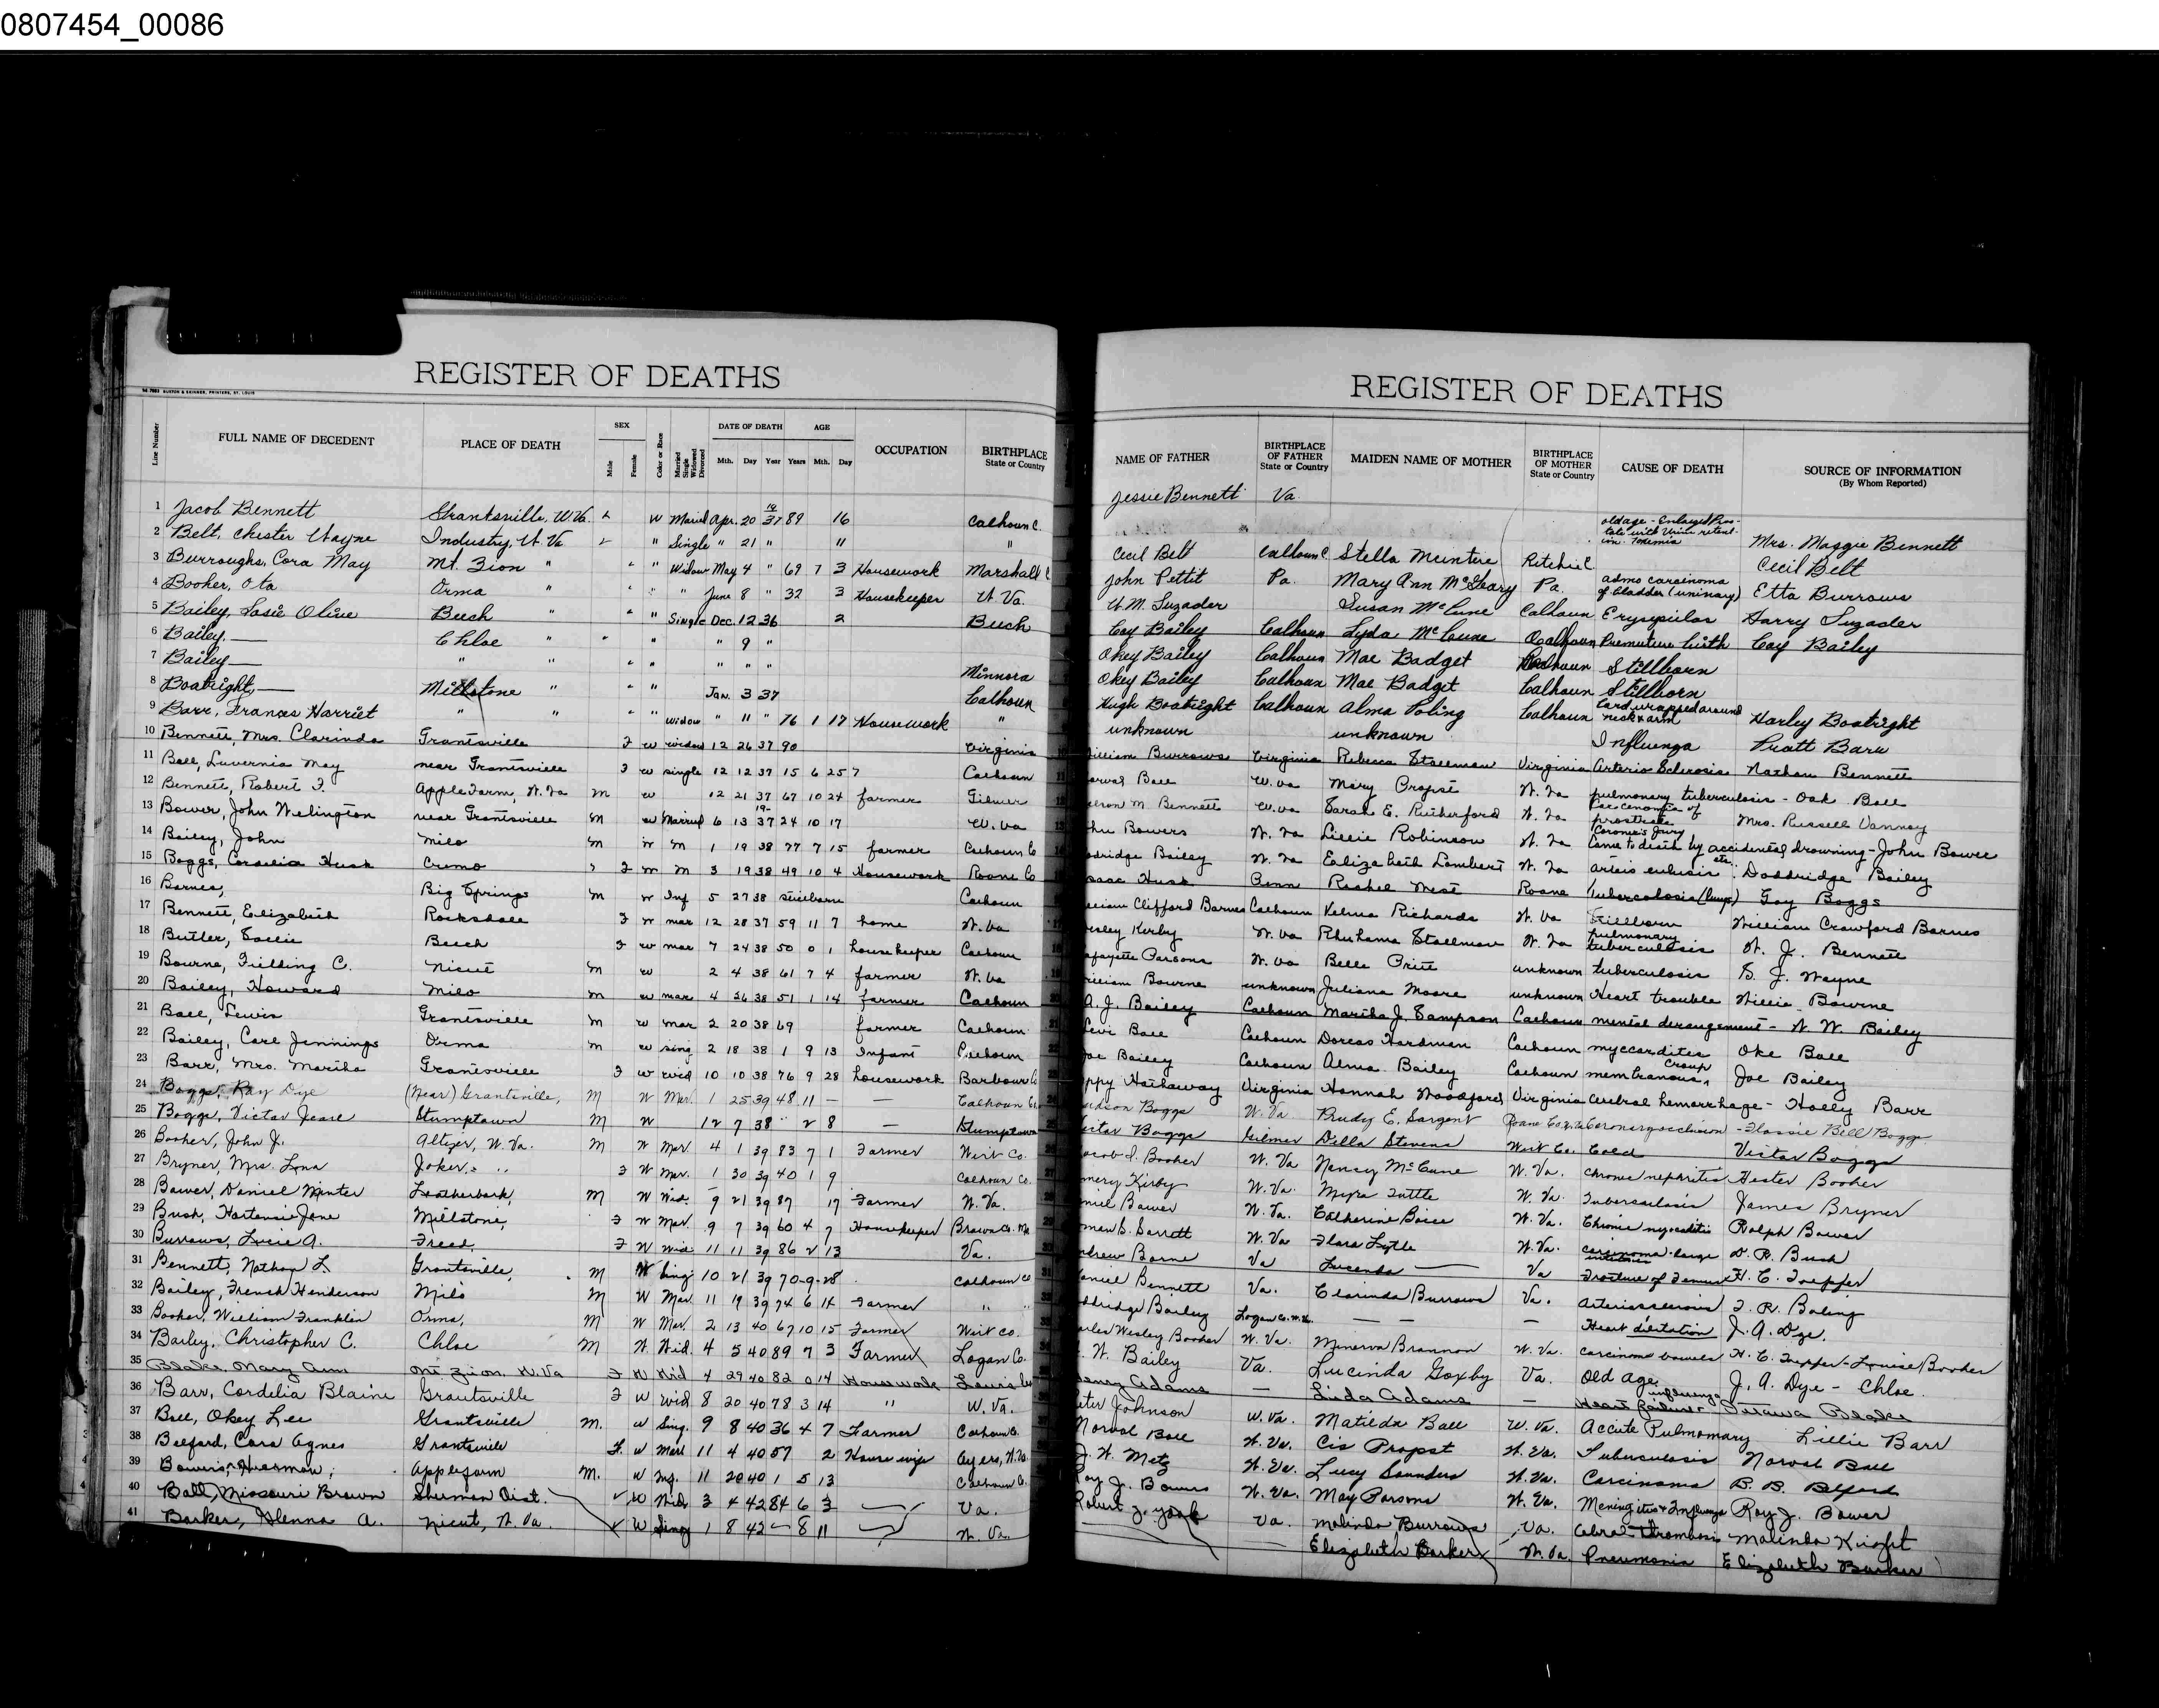 0807454_00086
REGISTER OF DEATHS
REGISTER OF DEATHS
Line Number FULL NAME OF DECEDENT PLACE OF DEATH SEX Male Female Color or Race Married Single Widowed Divorced DATE OF DEATH Mth. Day Year AGE Years Mth. Day OCCUPATION BIRTHPLACE State or Country
NAME OF FATHER BIRTHPLACE OF FATHER State or Country MAIDEN NAME OF MOTHER BIRTHPLACE OF MOTHER State or Country CAUSE OF DEATH SOURCE OF INFORMATION (By Whom Reported)
1 Jacob Bennett Grantsville, W.Va. W Apr. 20 37 89 16 Calhoun C. Jessie Bennett Va. Mrs. Maggie Bennett
2 Belt, Chester Wayne Industry, W. Va " Single " 21 " 11 " Cecil Belt Calhoun C. Stella McIntire Ritchie C Cecil Belt
3 Burroughs, Cora May Mt. Zion " " Widow May 4 " 69 7 3 Housework Marshall C John Pettit Pa. Mary Ann McGeary Pa. of bladder Etta Burrows
4 Booker, Ota Orma " " " June 8 " 32 3 Housekeeper W. Va. Susan McCune Calhoun Erysipelas Harry
5 Bailey, Olive Beech " " Single Dec. 12 36 2 Beech Coy Bailey Calhoun Lyda McCune Calhoun Premature birth Coy Bailey
6 Bailey, — Chloe " " " 9 " Okey Bailey Calhoun Mae Badget Calhoun Stillborn
7 Bailey — " " " " " " Minnora Okey Bailey Calhoun Mae Badget Calhoun Stillborn
8 Boatright, — Millstone " " Jan. 3 37 Calhoun Hugh Boatright Calhoun Alma Poling Calhoun Cord wrapped around neck & arm Harley Boatright
9 Barr, Frances Harriet " " " widow " 11 " 76 1 17 Housework " unknown unknown Influenza Pratt Barr
10 Bennett, Mrs. Clarinda Grantsville F w widow 12 26 37 90 Virginia William Burrows Virginia Rebecca Stallman Virginia Arterio Sclerosis Nathan Bennett
11 Ball, Luvernia May near Grantsville F w single 12 12 37 15 6 25 Calhoun Norval Ball W.Va Mary Propst W. Va pulmonary tuberculosis - Oak Ball
12 Bennett, Robert F. Apple Farm, W. Va m w 12 21 37 67 10 24 farmer Gilmer M Bennett W.va Sarah E. Rutherford W. Va Carcenomia of prostrate Mrs. Russell Vannoy
13 Bower, John Welington near Grantsville m w Married 6 13 37 24 10 17 W. Va John Bowers W. Va Lillie Robinson W. Va Coroner's Jury Came to death by accidental drowning - John Bower
14 Bailey, John Milo m w m 1 19 38 77 7 15 farmer Calhoun Co Doddridge Bailey W. Va Elizabeth Lambert W. Va Doddridge Bailey
15 Boggs, Cordelia Husk Cremo F w m 3 19 38 49 10 4 Housework Roane Co Isaac Husk Penn Rachel West Roane Tuberculosis (lungs) Gay Boggs
16 Barnes, Big Springs m w Inf 5 27 38 stillborn Calhoun William Clifford Barnes Calhoun Velma Richards W. Va Stillborn William Crawford Barnes
17 Bennett, Elizabeth Rocksdale F w mar 12 28 37 59 11 7 home W. Va Wesley Kerby W. Va Rhuhama Stallman W. Va pulmonary tuberculosis W. J. Bennett
18 Butler, Sallie Beech F w mar 7 24 38 50 0 1 housekeeper Calhoun Lafayette Parsons W. Va Belle Pritt unknown tuberculosis S. J. Wayne
19 Bourne, Fielding C. Nicut m w 2 4 38 61 7 4 farmer W. Va William Bourne unknown Juliana Moore unknown Heart trouble Willie Bourne
20 Bailey, Howard Milo m w mar 4 26 38 51 1 14 farmer Calhoun A. J. Bailey Calhoun Martha J. Sampson Calhoun mental derangement - W. W. Bailey
21 Ball, Lewis Grantsville m w mar 2 20 38 69 farmer Calhoun Levi Ball Calhoun Dorcas Hardman Calhoun myccarditis Oke Ball
22 Bailey, Carl Jennings Orma m w sing 2 18 38 1 9 13 Infant Calhoun Joe Bailey Calhoun Alma Bailey Calhoun membranous Croup Joe Bailey
23 Barr, Mrs. Martha Grantsville F w wid 10 10 38 76 9 28 housework Barbour Co Hathaway Virginia Hannah Woodford Virginia cerebral hemorrhage - Holly Barr
24 Boggs, Ray Dye (Near) Grantsville, M W Mar. 1 25 39 48 11 — — Calhoun Co. Judson Boggs W. Va Prudy E. Sargent Coronary occlusion - Flossie Bell Boggs
25 Boggs, Victor Jearl Stumptown M W 12 7 38 2 8 — Stumptown Victor Boggs Gilmer Della Stevens Wirt Co. Cold Victor Boggs
26 Booher, John J. Altizer, W. Va. M W Mar. 4 1 39 83 7 1 Farmer Wirt Co. Jacob I. Booher W. Va Nancy McCune W. Va. chronic nephritis Hester Booher
27 Bryner, Mrs. Lona Joker, " F W Mar. 1 30 39 40 1 9 Calhoun Co. Emery Kirby W. Va. Myra Tuttle W. Va. Tuberculosis James Bryner
28 Bower, Daniel Minter Leatherbark, M W Wid. 9 21 39 87 17 Farmer W. Va. Daniel Bower W. Va. Catherine Boice W. Va. Chronic myocaditis Ralph Bower
29 Bush, Hortensie Jane Millstone, F W Mar. 9 7 39 60 4 7 Housekeeper S. Sarrett W. Va Flora Lytle W. Va. carcinoma - large intestines D. R. Bush
30 Burrows, Lucie A. Freed, F W Wid 11 11 39 86 2 13 Va. Andrew Barne Va Lucenda — Va Fracture of Femur H. C. Toepfer
31 Bennett, Nathan L. Grantsville, M W Sing 10 21 39 70-9-28 Calhoun Co Daniel Bennett Va. Clarinda Burrows Va. arteriosclerosis F. R. Boling
32 Bailey, French Henderson Milo M W Mar. 11 19 39 74 6 14 Farmer " " Doddridge Bailey Logan Co. W. Va. — — — Heart dilitation J. A. Dye.
33 Booher, William Franklin Orma, M W Mar. 2 13 40 67 10 15 Farmer Wirt Co. Charles Wesley Booher W. Va. Minerva Brannon W. Va. carcinoma bowels H. C. Toepfer - Louise Booher
34 Bailey, Christopher C. Chloe M W. Wid. 4 5 40 89 7 3 Farmer Logan Co. W. Bailey Va. Lucinda Goxby Va. Old Age J. A. Dye - Chloe.
35 Blake, Mary Ann Mt. Zion, W. Va F W Wid 4 29 40 82 0 14 Housework Lewis Co Henry Adams — Lida Adams — Heart failure - influenza Ottawa Blake
36 Barr, Cordelia Blaine Grantsville F W Wid 8 20 40 78 3 14 " W. Va. Peter Johnson W. Va. Matilda Ball W. Va. Accute Pulmonary Lillie Barr
37 Ball, Okey Lee Grantsville M. W Sing. 9 8 40 36 4 7 Farmer Calhoun Co. Norval Ball W. Va. Cis Propst W. Va. Tuberculosis Norval Ball
38 Belford, Cora Agnes Grantsville F. W Mard 11 4 40 57 2 Housewife Ayers, W. Va. J. W. Metz W. Va. Lucy Saunders W. Va. Carcinoma B. B. Belford
39 Bowers, Herman; Applefarm M. W 11 20 40 1 5 13 Calhoun Co. Roy J. Bowers W. Va. May Parsons W. Va. Meningitis & Influenza Roy J. Bower
40 Ball, Missouri Brown Sherman Dist. W Wid. 3 4 42 84 6 3 Va. Robert J. York Va. Malinda Burrows Va. Thrombosis Malinda Knight
41 Barker, Glenna A. Nicut, W. Va. W Sing 1 8 42 — 8 11 W. Va. — Elizabeth Barker W. Va. Pneumonia Elizabeth Barker